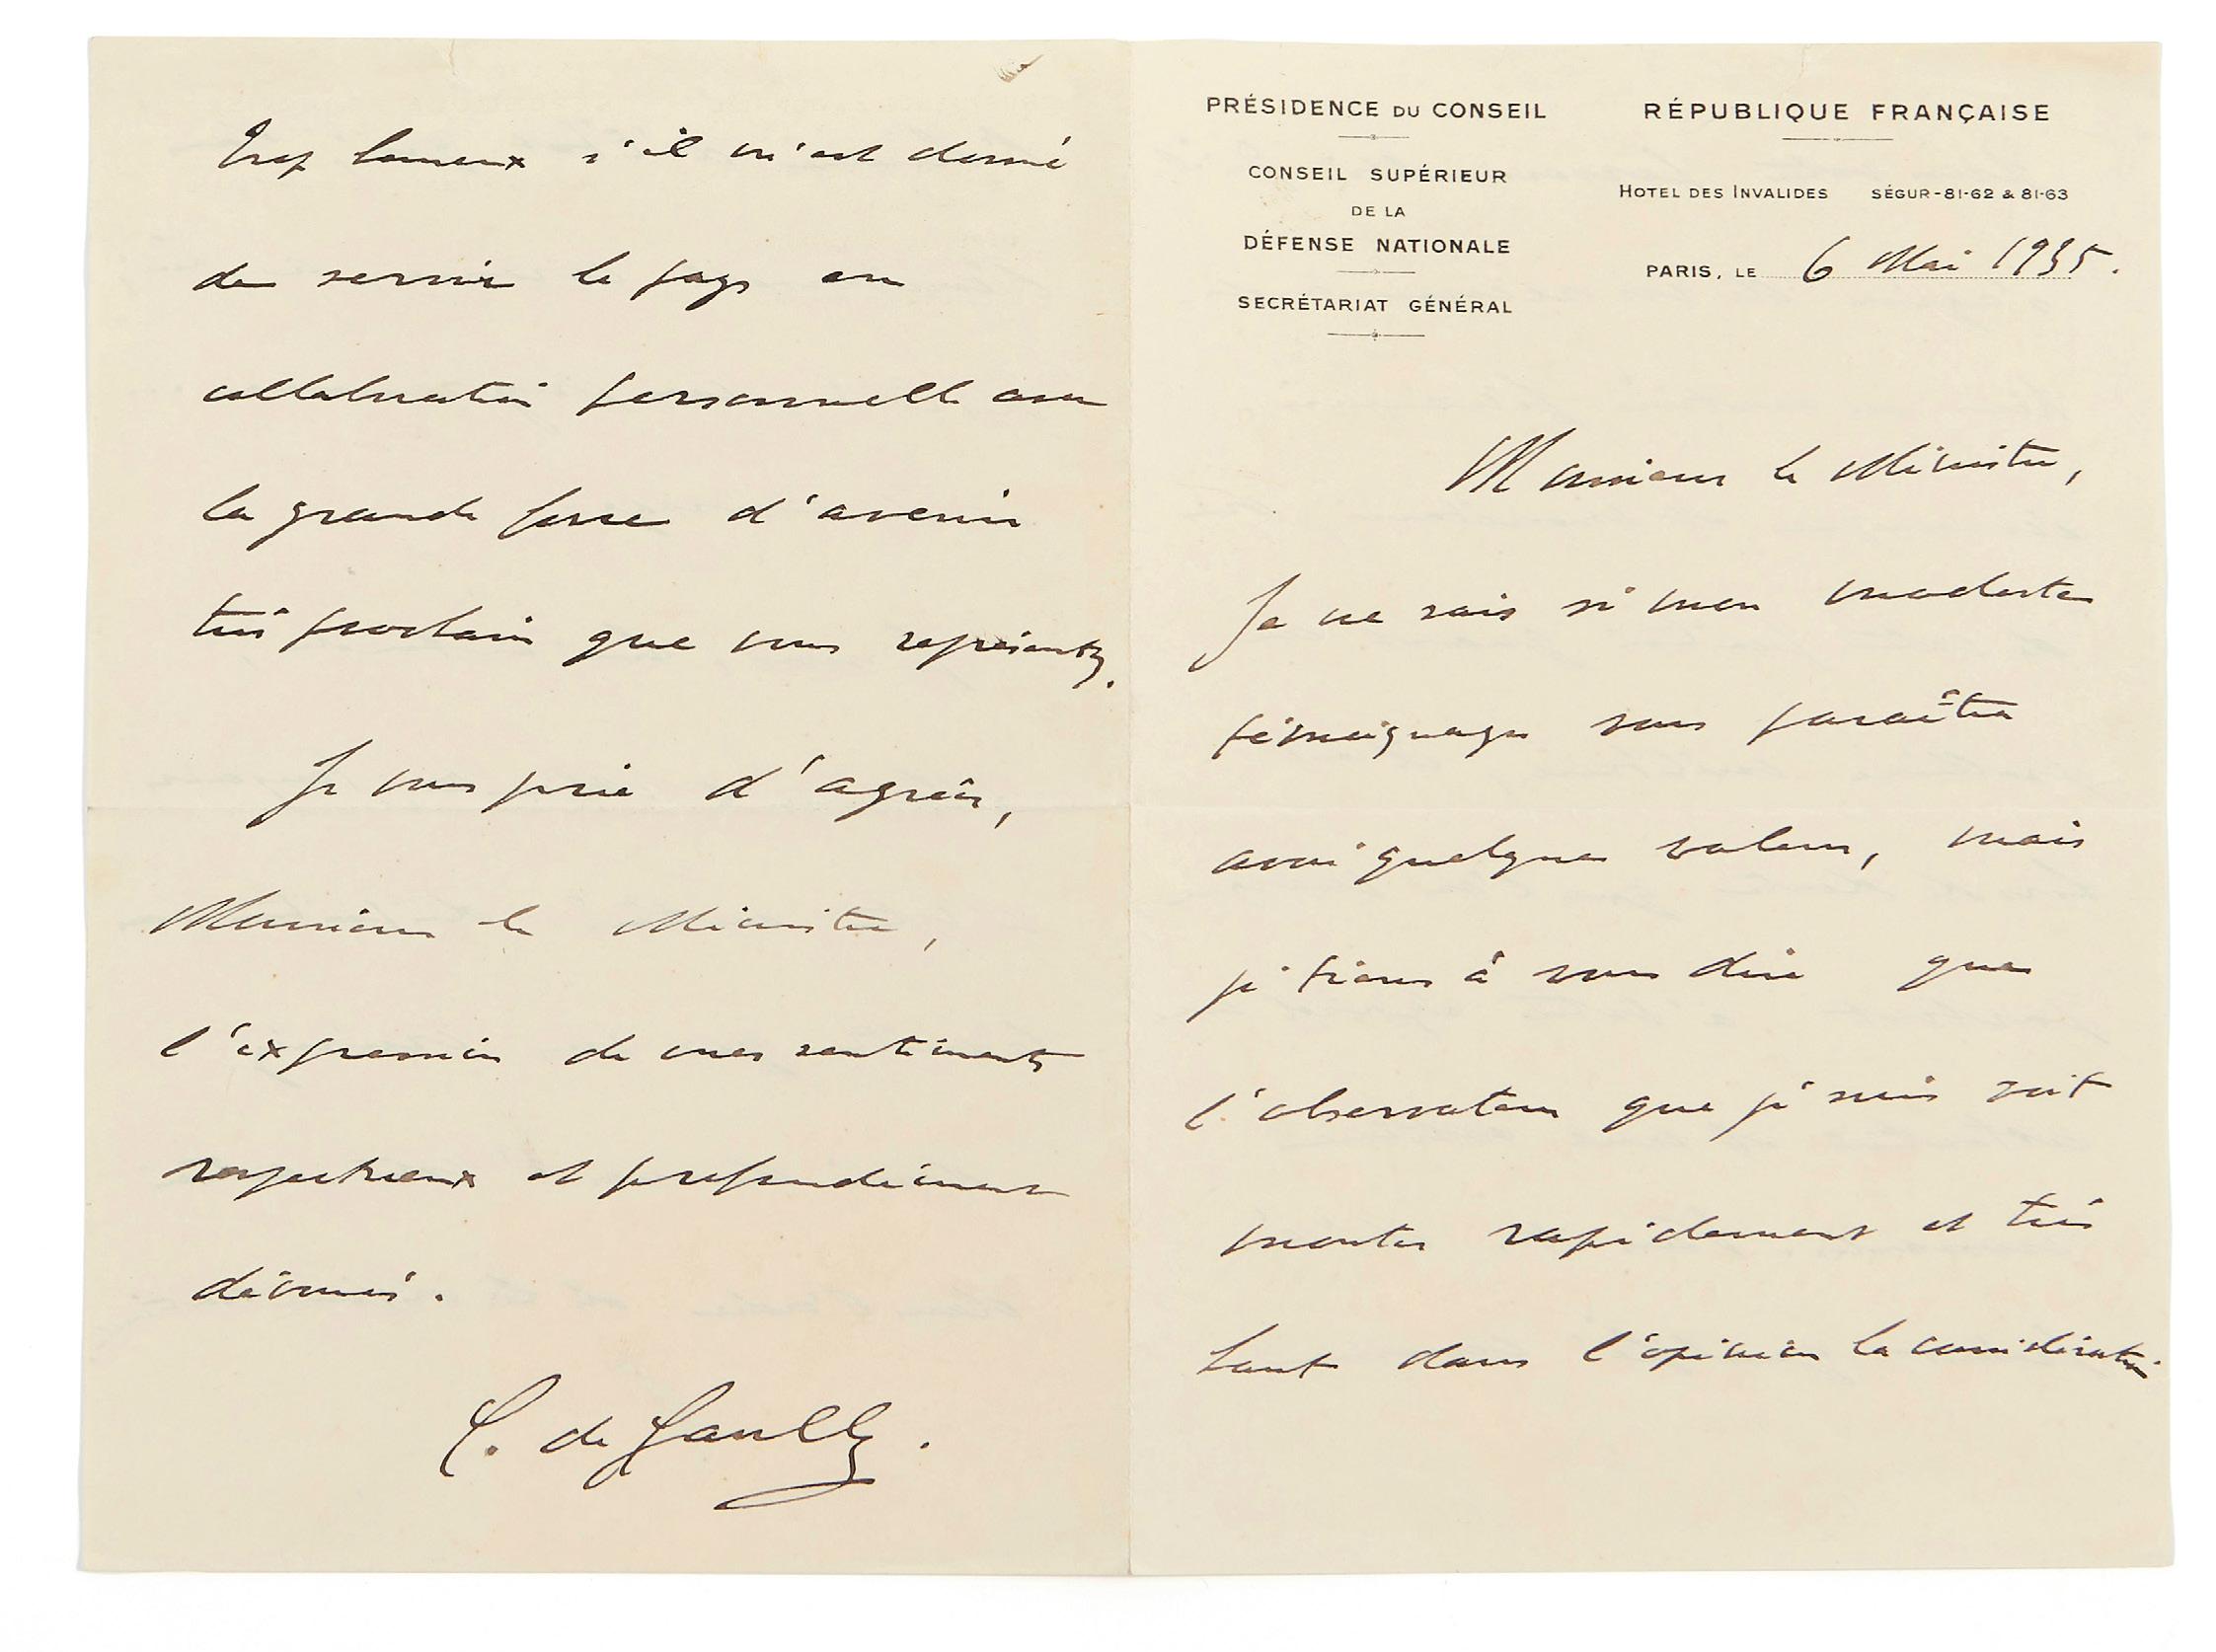 PRÉSIDENCE DU CONSEIL
CONSEIL SUPÉRIEUR
DE LA
DÉFENSE NATIONALE
SECRÉTARIAT GÉNÉRAL
RÉPUBLIQUE FRANÇAISE
HOTEL DES INVALIDES SÉGUR-81-62 & 81-63
PARIS, LE 6 Mai 1935.
Monsieur le Ministre,
Je ne sais si mon modeste
témoignage vous paraîtra
avoir quelque valeur, mais
je tiens à vous dire que
l'observateur que je suis voit
monter rapidement et très
haut dans l'opinion la considération
Trop heureux s'il m'est donné
de servir le pays en
collaboration personnelle avec
la grande force d'avenir
très prochain que vous représentez.
Je vous prie d'agréer,
Monsieur le Ministre,
l'expression de mes sentiments
respectueux et profondément
dévoués.
C. de Gaulle.